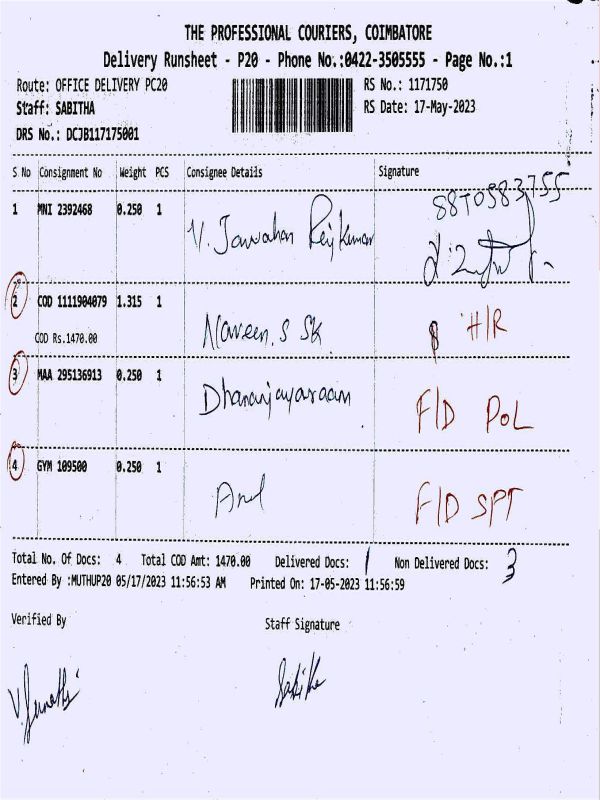 THE PROFESSIONAL COURIERS, COIMBATORE
Delivery Runsheet - P20 - Phone No.:0422-3505555 - Page No.:1
Route: OFFICE DELIVERY PC20
RS No.: 1171750
Staff: SABITHA
RS Date: 17-May-2023
DRS No.: DCJB117175001
S No Consignment No Weight PCS Consignee Details Signature
8870583755
1 MNI 2392468 0.250 1 V. Jawahar Rajkumar
2 COD 1111904079 1.315 1 Naveen. S SK H/R
COD Rs.1470.00
3 MAA 295136913 0.250 1 Dhananjayaraam F/D POL
4 GYM 109500 0.250 1 Arul F/D SPT
Total No. Of Docs: 4 Total COD Amt: 1470.00 Delivered Docs: 1 Non Delivered Docs: 3
Entered By :MUTHUP20 05/17/2023 11:56:53 AM Printed On: 17-05-2023 11:56:59
Verified By Staff Signature
Sabitha